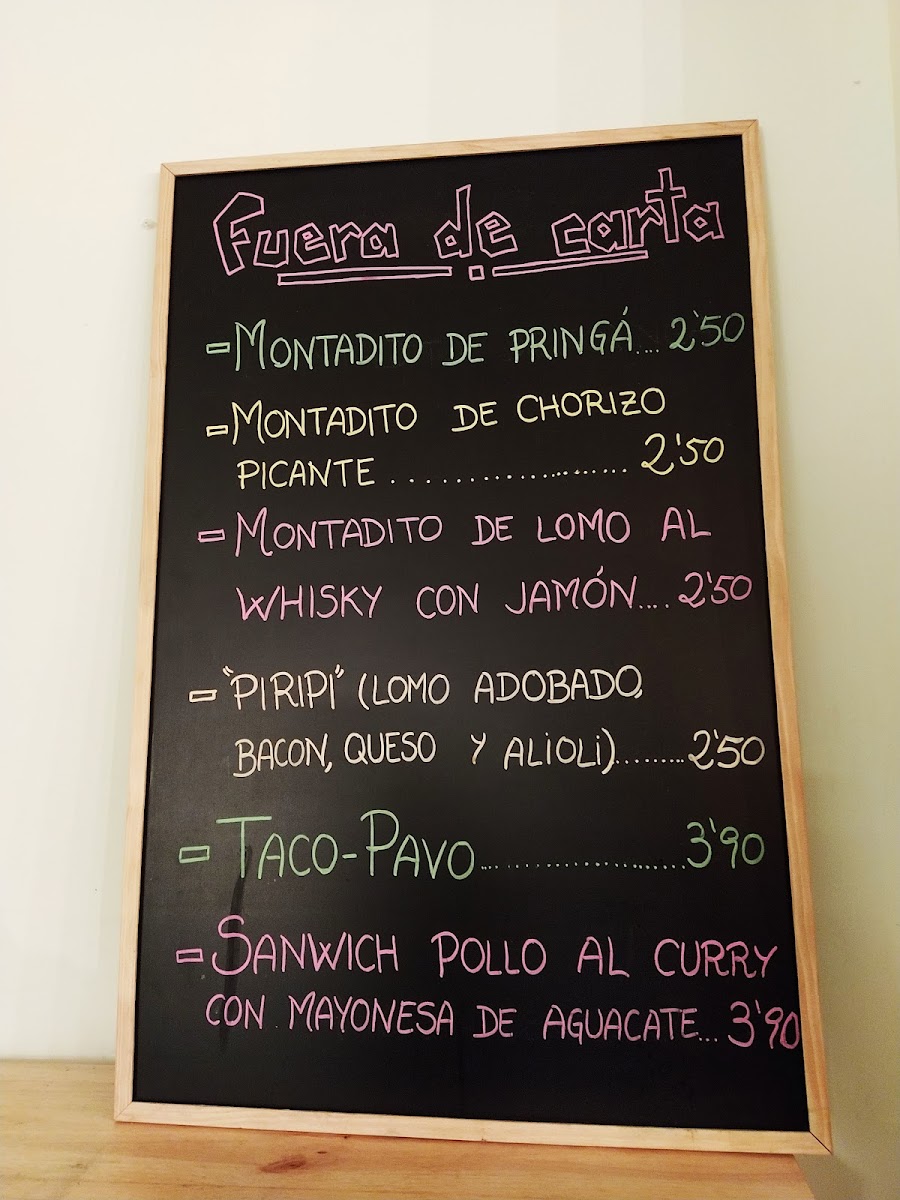 Fuera de carta
- MONTADITO DE PRINGÁ.... 2'50
- MONTADITO DE CHORIZO
PICANTE ........................ 2'50
- MONTADITO DE LOMO AL
WHISKY CON JAMÓN.... 2'50
- "PIRIPI" (LOMO ADOBADO,
BACON, QUESO Y ALIOLI)......... 2'50
- TACO-PAVO........................ 3'90
- SANWICH POLLO AL CURRY
CON MAYONESA DE AGUACATE... 3'90